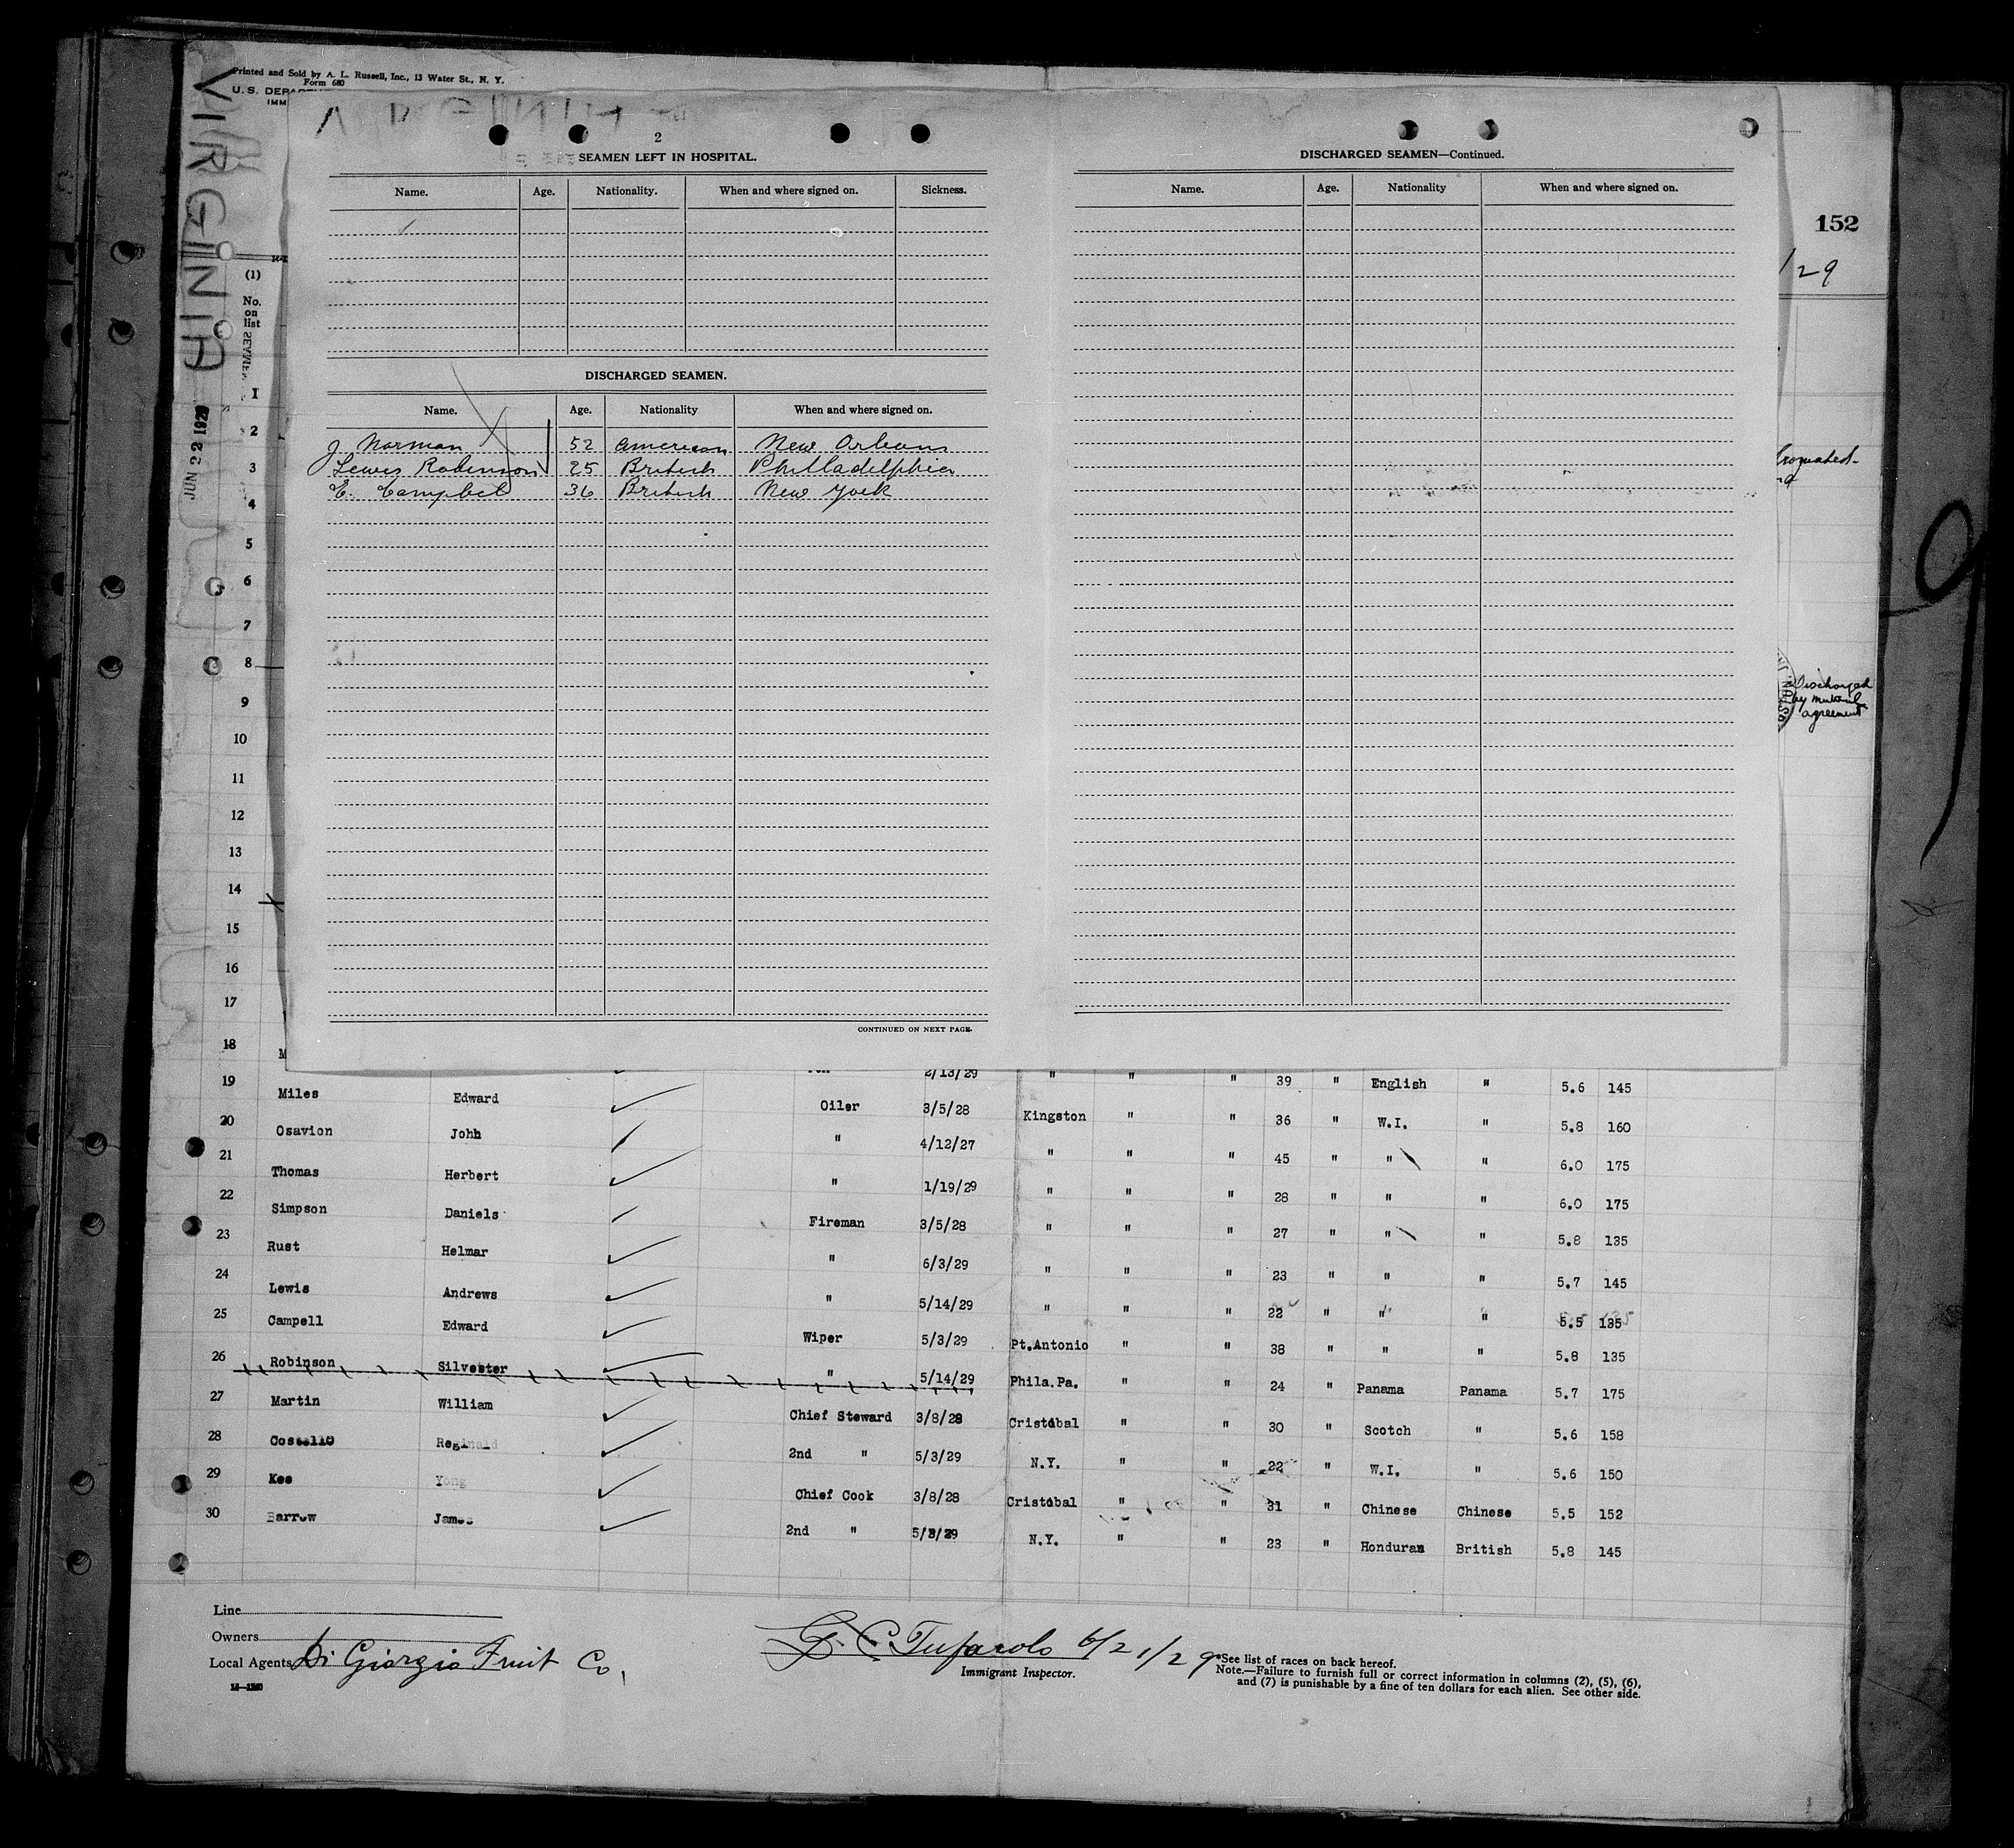 Printed and Sold by A. L. Russell, Inc., 13 Water St., N. Y.
Form 680
U.S. DEPA
IMM
VIRGINIA
JUN 22 1929
152
/29
2
SEAMEN LEFT IN HOSPITAL.
Name. Age. Nationality. When and where signed on. Sickness.
DISCHARGED SEAMEN.
Name. Age. Nationality When and where signed on.
J Norman 52 American New Orleans
Lewis Robinson 25 British Philladelphia
E. Campbel 36 British New York
CONTINUED ON NEXT PAGE.
DISCHARGED SEAMEN—Continued.
Name. Age. Nationality When and where signed on.
(1)
No.
on
list
SEAMEN
1
2
3
4
5
6
7
8
9
10
11
12
13
14
15
16
17
18 M
Discharged
by mutual
agreement
2/13/29 " " " 39 " English " 5.6 145
19 Miles Edward Oiler 3/5/28 Kingston " " 36 " W.I. " 5.8 160
20 Osavion John " 4/12/27 " " " 45 " " " 6.0 175
21 Thomas Herbert " 1/19/29 " " " 28 " " " 6.0 175
22 Simpson Daniels Fireman 3/5/28 " " " 27 " " " 5.8 135
23 Rust Helmar " 6/3/29 " " " 23 " " " 5.7 145
24 Lewis Andrews " 5/14/29 " " " 22 " " " 5.5 135
25 Campell Edward Wiper 5/3/29 Pt.Antonio " " 38 " " " 5.8 135
26 Robinson Silvester " 5/14/29 Phila.Pa. " " 24 " Panama Panama 5.7 175
27 Martin William Chief Steward 3/8/28 Cristobal " " 30 " Scotch " 5.6 158
28 Costello Reginald 2nd " 5/3/29 N.Y. " " 22 " W.I. " 5.6 150
29 Kee Yong Chief Cook 3/8/28 Cristobal " " 31 " Chinese Chinese 5.5 152
30 Barrow James 2nd " 5/3/29 N.Y. " " 23 " Honduran British 5.8 145
Line
Owners
Local Agents Di Giorgio Fruit Co.
6/21/29
Immigrant Inspector.
*See list of races on back hereof.
Note.—Failure to furnish full or correct information in columns (2), (5), (6),
and (7) is punishable by a fine of ten dollars for each alien. See other side.